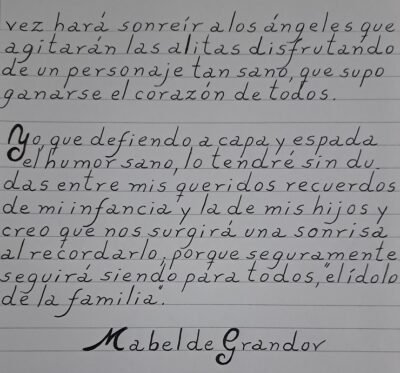 vez hará sonreír a los ángeles que
agitarán las alitas disfrutando
de un personaje tan sano, que supo
ganarse el corazón de todos.
Yo, que defiendo a capa y espada
el humor sano, lo tendré sin du_
das entre mis queridos recuerdos
de mi infancia y la de mis hijos y
creo que nos surgirá una sonrisa
al recordarlo, porque seguramente
seguirá siendo para todos, "el ídolo
de la familia".
Mabel de Grandov